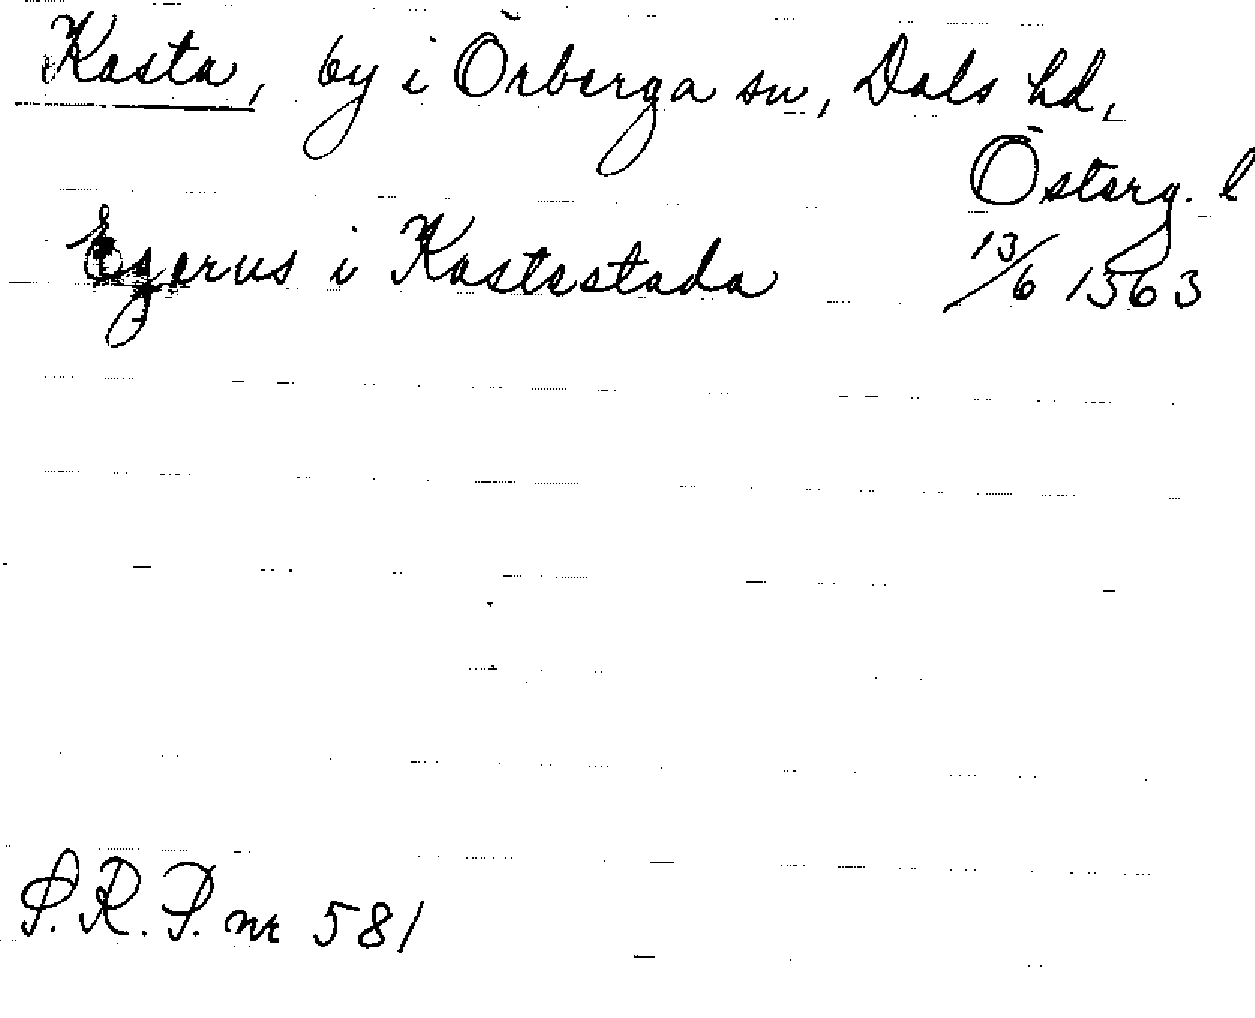 Kasta, by i Örberga sn, Dals hd,
Österg. l
Egerus i Kastestada 13/6 1563
S.R.P. nr 581